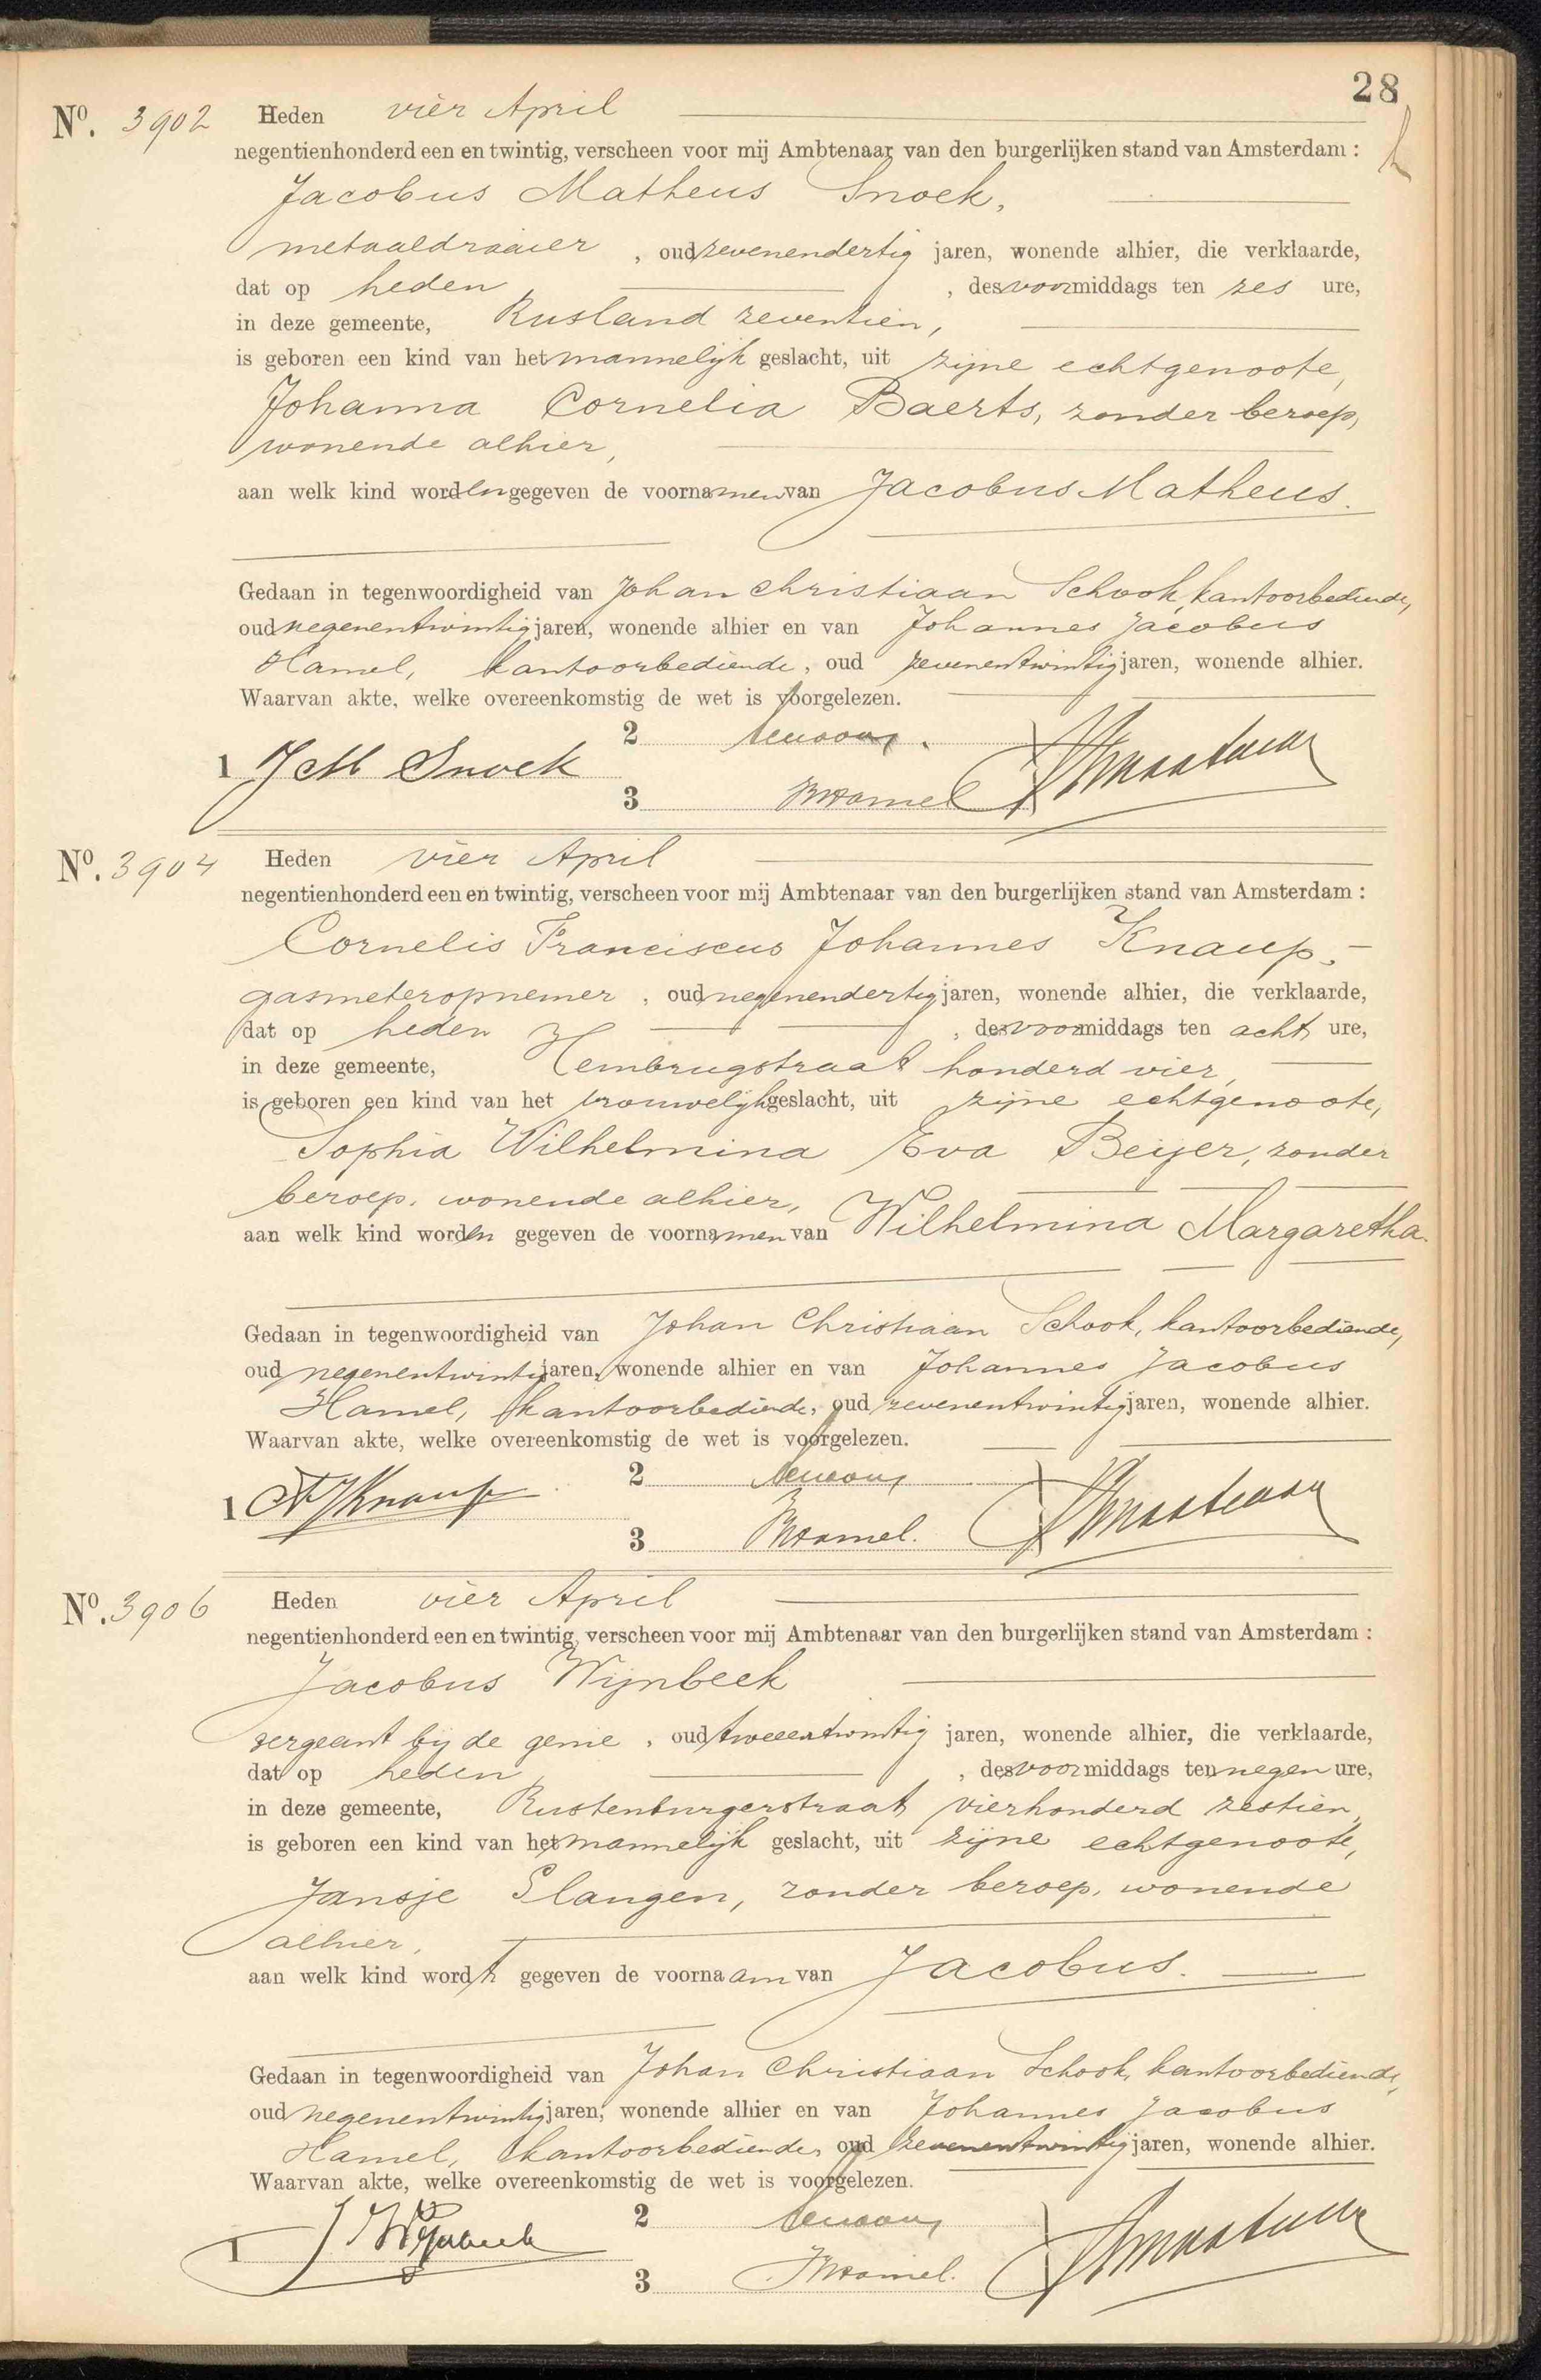 28
No. 3902 Heden vier April
negentienhonderd een en twintig, verscheen voor mij Ambtenaar van den burgerlijken stand van Amsterdam :
Jacobus Matheus Snoek,
metaaldraaier, oud zevenendertig jaren, wonende alhier, die verklaarde,
dat op heden, des voormiddags ten zes ure,
in deze gemeente, Rusland zeventien,
is geboren een kind van het mannelijk geslacht, uit zijne echtgenoote,
Johanna Cornelia Baerts, zonder beroep,
wonende alhier,
aan welk kind worden gegeven de voornamen van Jacobus Matheus.
Gedaan in tegenwoordigheid van Johan Christiaan Schook, kantoorbediende,
oud negenentwintig jaren, wonende alhier en van Johannes Jacobus
Hamel, kantoorbediende, oud zevenentwintig jaren, wonende alhier.
Waarvan akte, welke overeenkomstig de wet is voorgelezen.
2
1 J M Snoek
3 Hamel
No. 3904 Heden vier April
negentienhonderd een en twintig, verscheen voor mij Ambtenaar van den burgerlijken stand van Amsterdam :
Cornelis Franciscus Johannes Knaup,
gasmeteropnemer, oud negenendertig jaren, wonende alhier, die verklaarde,
dat op heden, des voormiddags ten acht ure,
in deze gemeente, Hembrugstraat honderd vier,
is geboren een kind van het vrouwelijk geslacht, uit zijne echtgenoote,
Sophia Wilhelmina Eva Beijer, zonder
beroep, wonende alhier,
aan welk kind worden gegeven de voornamen van Wilhelmina Margaretha.
Gedaan in tegenwoordigheid van Johan Christiaan Schook, kantoorbediende,
oud negenentwintig jaren, wonende alhier en van Johannes Jacobus
Hamel, kantoorbediende, oud zevenentwintig jaren, wonende alhier.
Waarvan akte, welke overeenkomstig de wet is voorgelezen.
2
1 Knaup
3 Hamel.
No. 3906 Heden vier April
negentienhonderd een en twintig, verscheen voor mij Ambtenaar van den burgerlijken stand van Amsterdam :
Jacobus Wijnbeek
sergeant bij de genie, oud tweeentwintig jaren, wonende alhier, die verklaarde,
dat op heden, des voormiddags ten negen ure,
in deze gemeente, Rustenburgerstraat vierhonderd zestien,
is geboren een kind van het mannelijk geslacht, uit zijne echtgenoote,
Jansje Slangen, zonder beroep, wonende
alhier,
aan welk kind wordt gegeven de voornaam van Jacobus.
Gedaan in tegenwoordigheid van Johan Christiaan Schook, kantoorbediende,
oud negenentwintig jaren, wonende alhier en van Johannes Jacobus
Hamel, kantoorbediende, oud zevenentwintig jaren, wonende alhier.
Waarvan akte, welke overeenkomstig de wet is voorgelezen.
2
1 J Wijnbeek
3 Hamel.